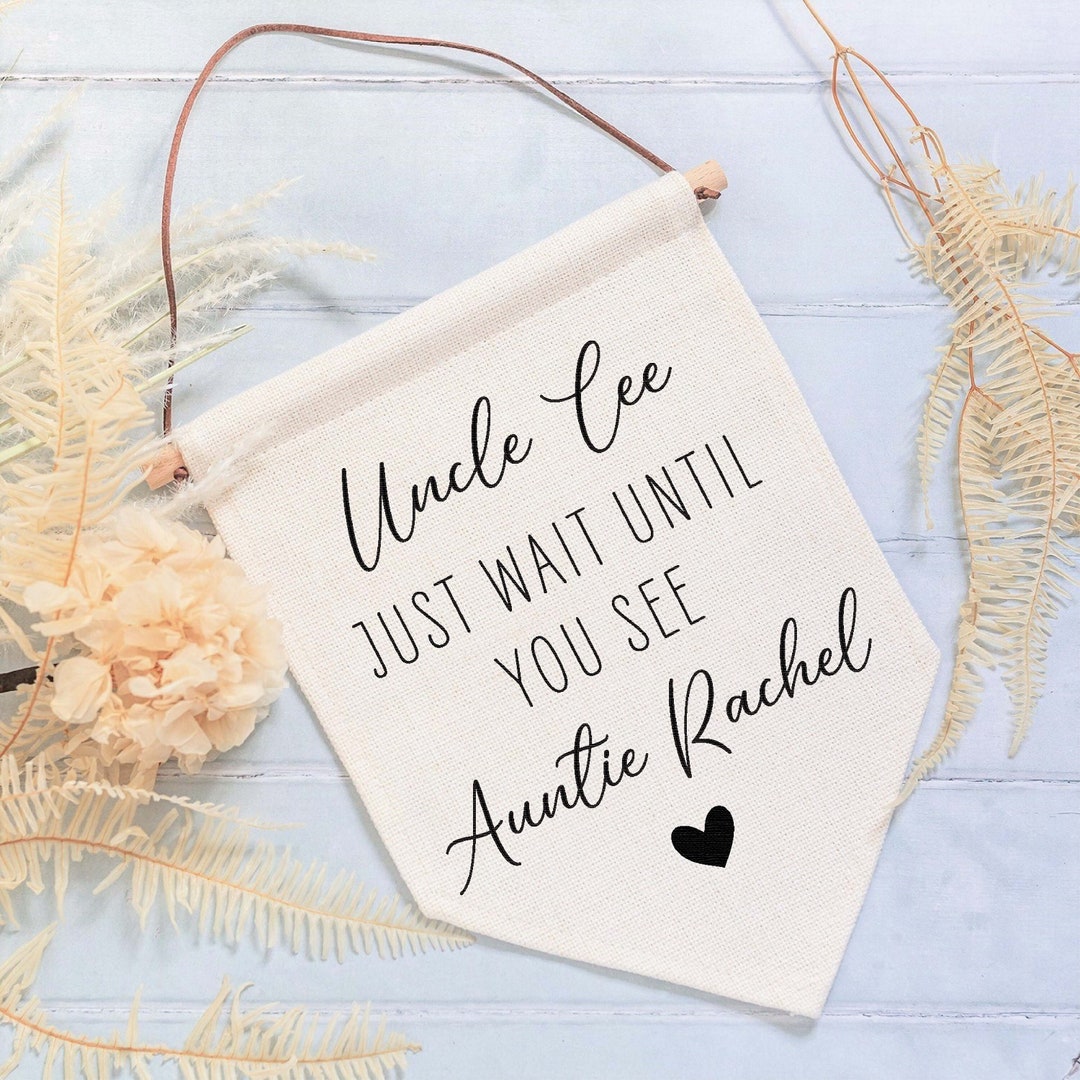 Uncle Lee
JUST WAIT UNTIL
YOU SEE
Auntie Rachel